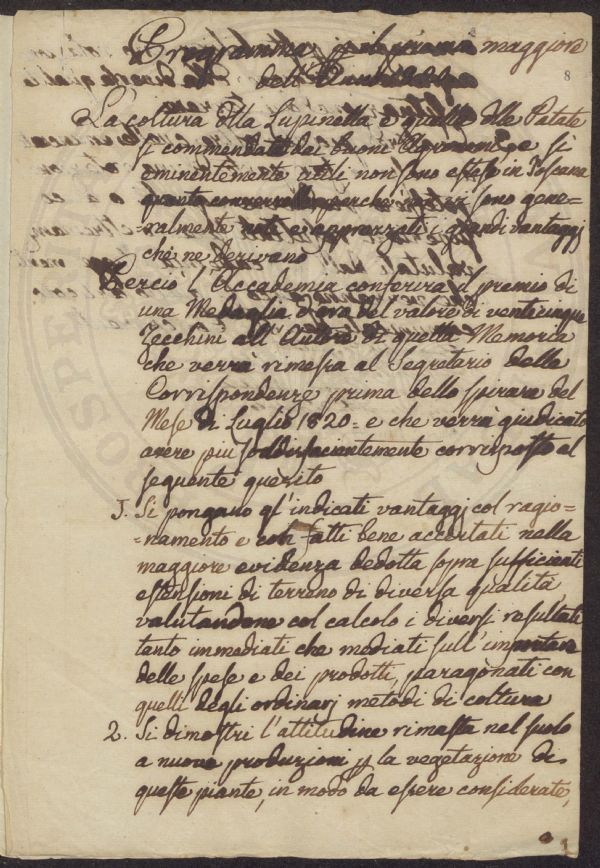 Programma per il premio maggiore
8
dell'
La coltura della Lupinella e quella delle Patate
si commendate dai buoni Agronomi, e si
eminentemente utili non sono estese in Toscana
quanto converrebbe perchè non sono gene=
=ralmente noti e apprezzati i grandi vantaggj
che ne derivano
Perciò l'Accademia conferirà il premio di
una Medaglia d'oro del valore di venticinque
Zecchini all'Autore di quella Memoria
che verrà rimessa al Segretario delle
Corrispondenze prima dello spirare del
Mese di Luglio 1820 = e che verrà giudicato
avere più soddisfacientemente corrisposto al
seguente quesito
1. Si pongano gl'indicati vantaggj col ragio=
=namento e con fatti bene accertati nella
maggiore evidenza dedotta sopra sufficienti
estensioni di terreno di diversa qualità,
valutandone col calcolo i diversi resultati
tanto immediati che mediati sull'importare
delle spese e dei prodotti, paragonati con
quelli degli ordinarj metodi di coltura
2. Si dimostri l'attitudine rimasta nel suolo
a nuove produzioni p la vegetazione di
queste piante, in modo da essere considerate,
1